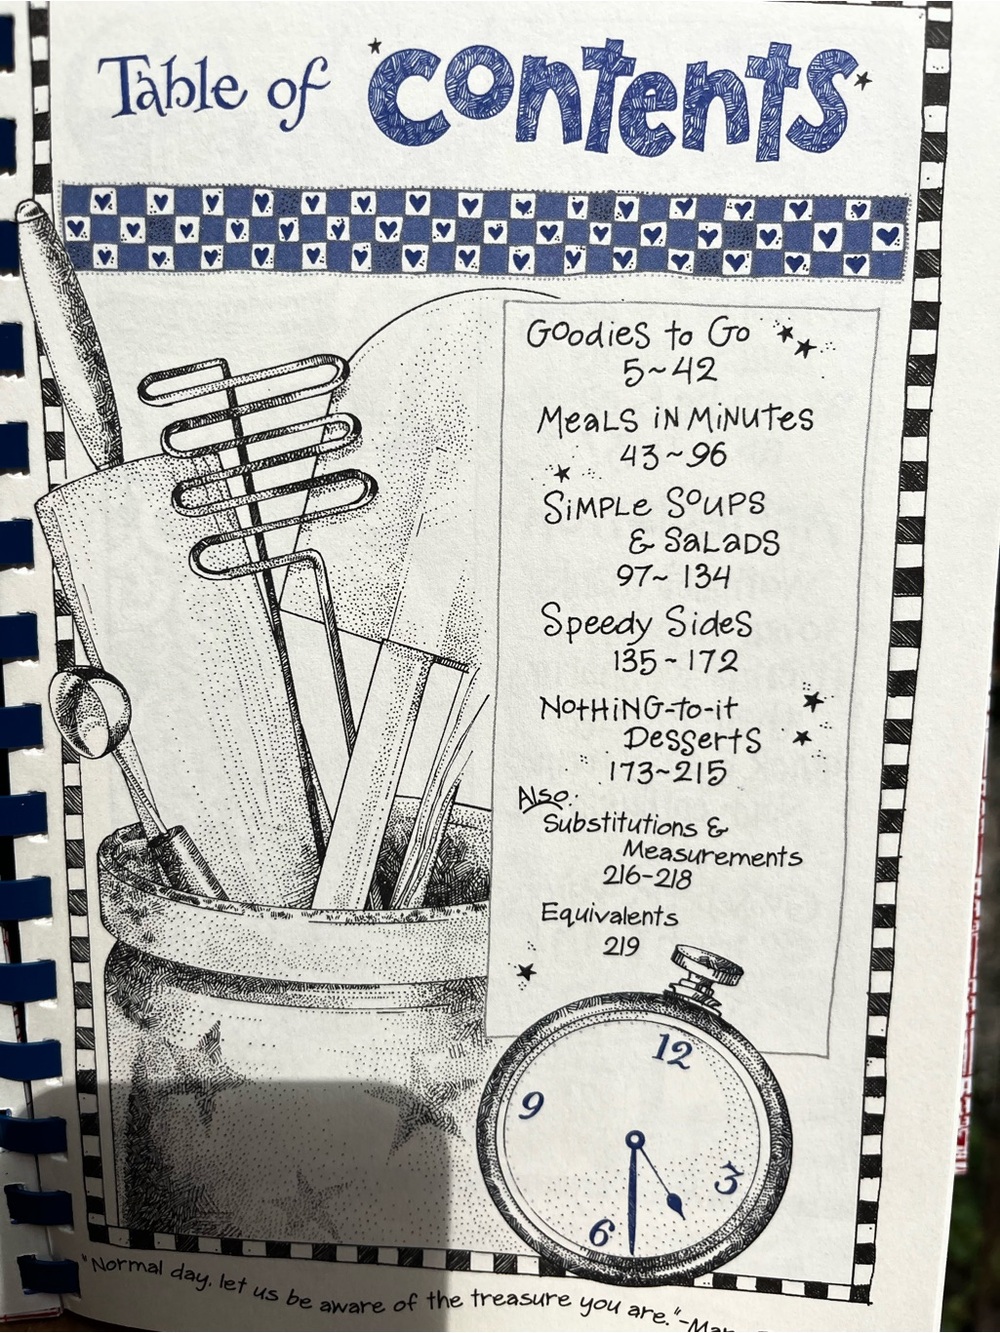 Table of Contents
Goodies to Go
5~42
Meals in Minutes
43~96
Simple Soups
& Salads
97~134
Speedy Sides
135~172
Nothing-to-it
Desserts
173~215
Also:
Substitutions &
Measurements
216-218
Equivalents
219
12
9
3
6
"Normal day, let us be aware of the treasure you are."